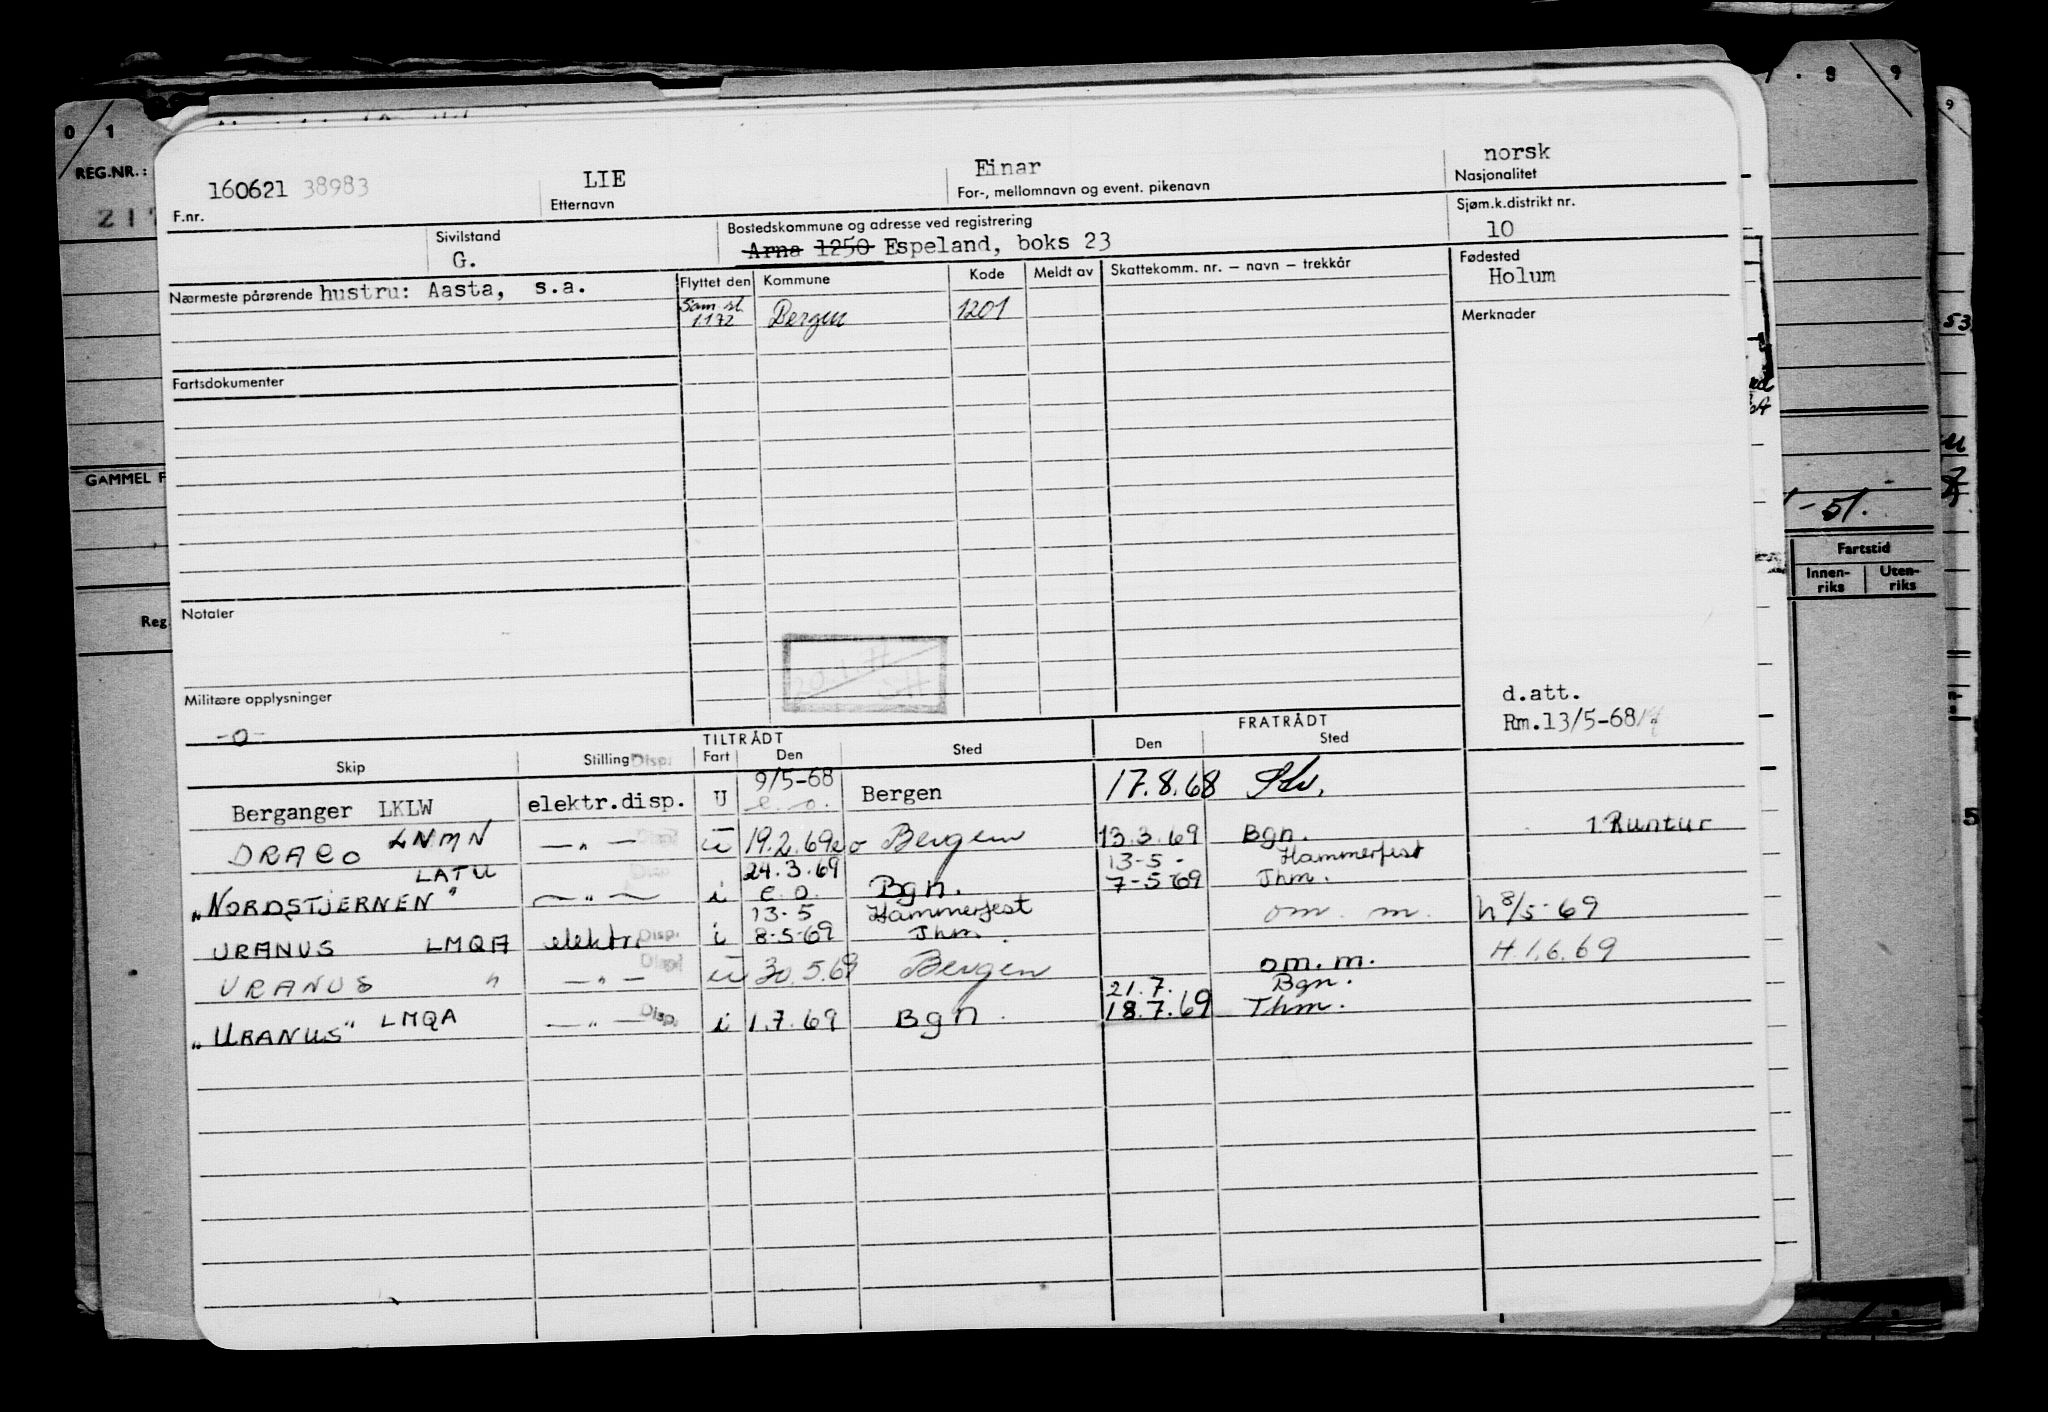 0 1
REG.NR.:
GAMMEL F
Reg.
. 8 9
9
53
- 51.
Fartstid
Innen-riks Uten-riks
5
160621 38983 LIE Einar norsk
F.nr. Etternavn For-, mellomnavn og event. pikenavn Nasjonalitet
Sivilstand Bostedskommune og adresse ved registrering Sjøm.k.distrikt nr.
G. Arna 1250 Espeland, boks 23 10
Nærmeste pårørende hustru: Aasta, s.a. Flyttet den Kommune Kode Meldt av Skattekomm. nr. – navn – trekkår Fødested
Holum
Sam.sl. 1172 Bergen 1201 Merknader
Fartsdokumenter
Notater
Militære opplysninger d.att.
-o- Rm.13/5-68
TILTRÅDT FRATRÅDT
Skip Stilling Fart Den Sted Den Sted
Disp.
9/5-68
Berganger LKLW elektr.disp. U e.o. Bergen 17.8.68 Stv.
DRACO LNMN —„— Disp. u 19.2.69 eo Bergen 13.3.69 Bgn. 1 Runtur
24.3.69 13-5- Hammerfest
„NORDSTJERNEN" LATU —„— Disp. i e.o. Bgn. 7-5-69 Thm.
13-5 Hammerfest
URANUS LMQA elektr. Disp. i 8-5-69 Thm. om. m. h 8/5-69
URANUS " —„— Disp. u 30.5.69 Bergen om.m. H.1.6.69
21.7. Bgn.
„URANUS" LMQA —„— Disp. i 1.7.69 Bgn. 18.7.69 Thm.